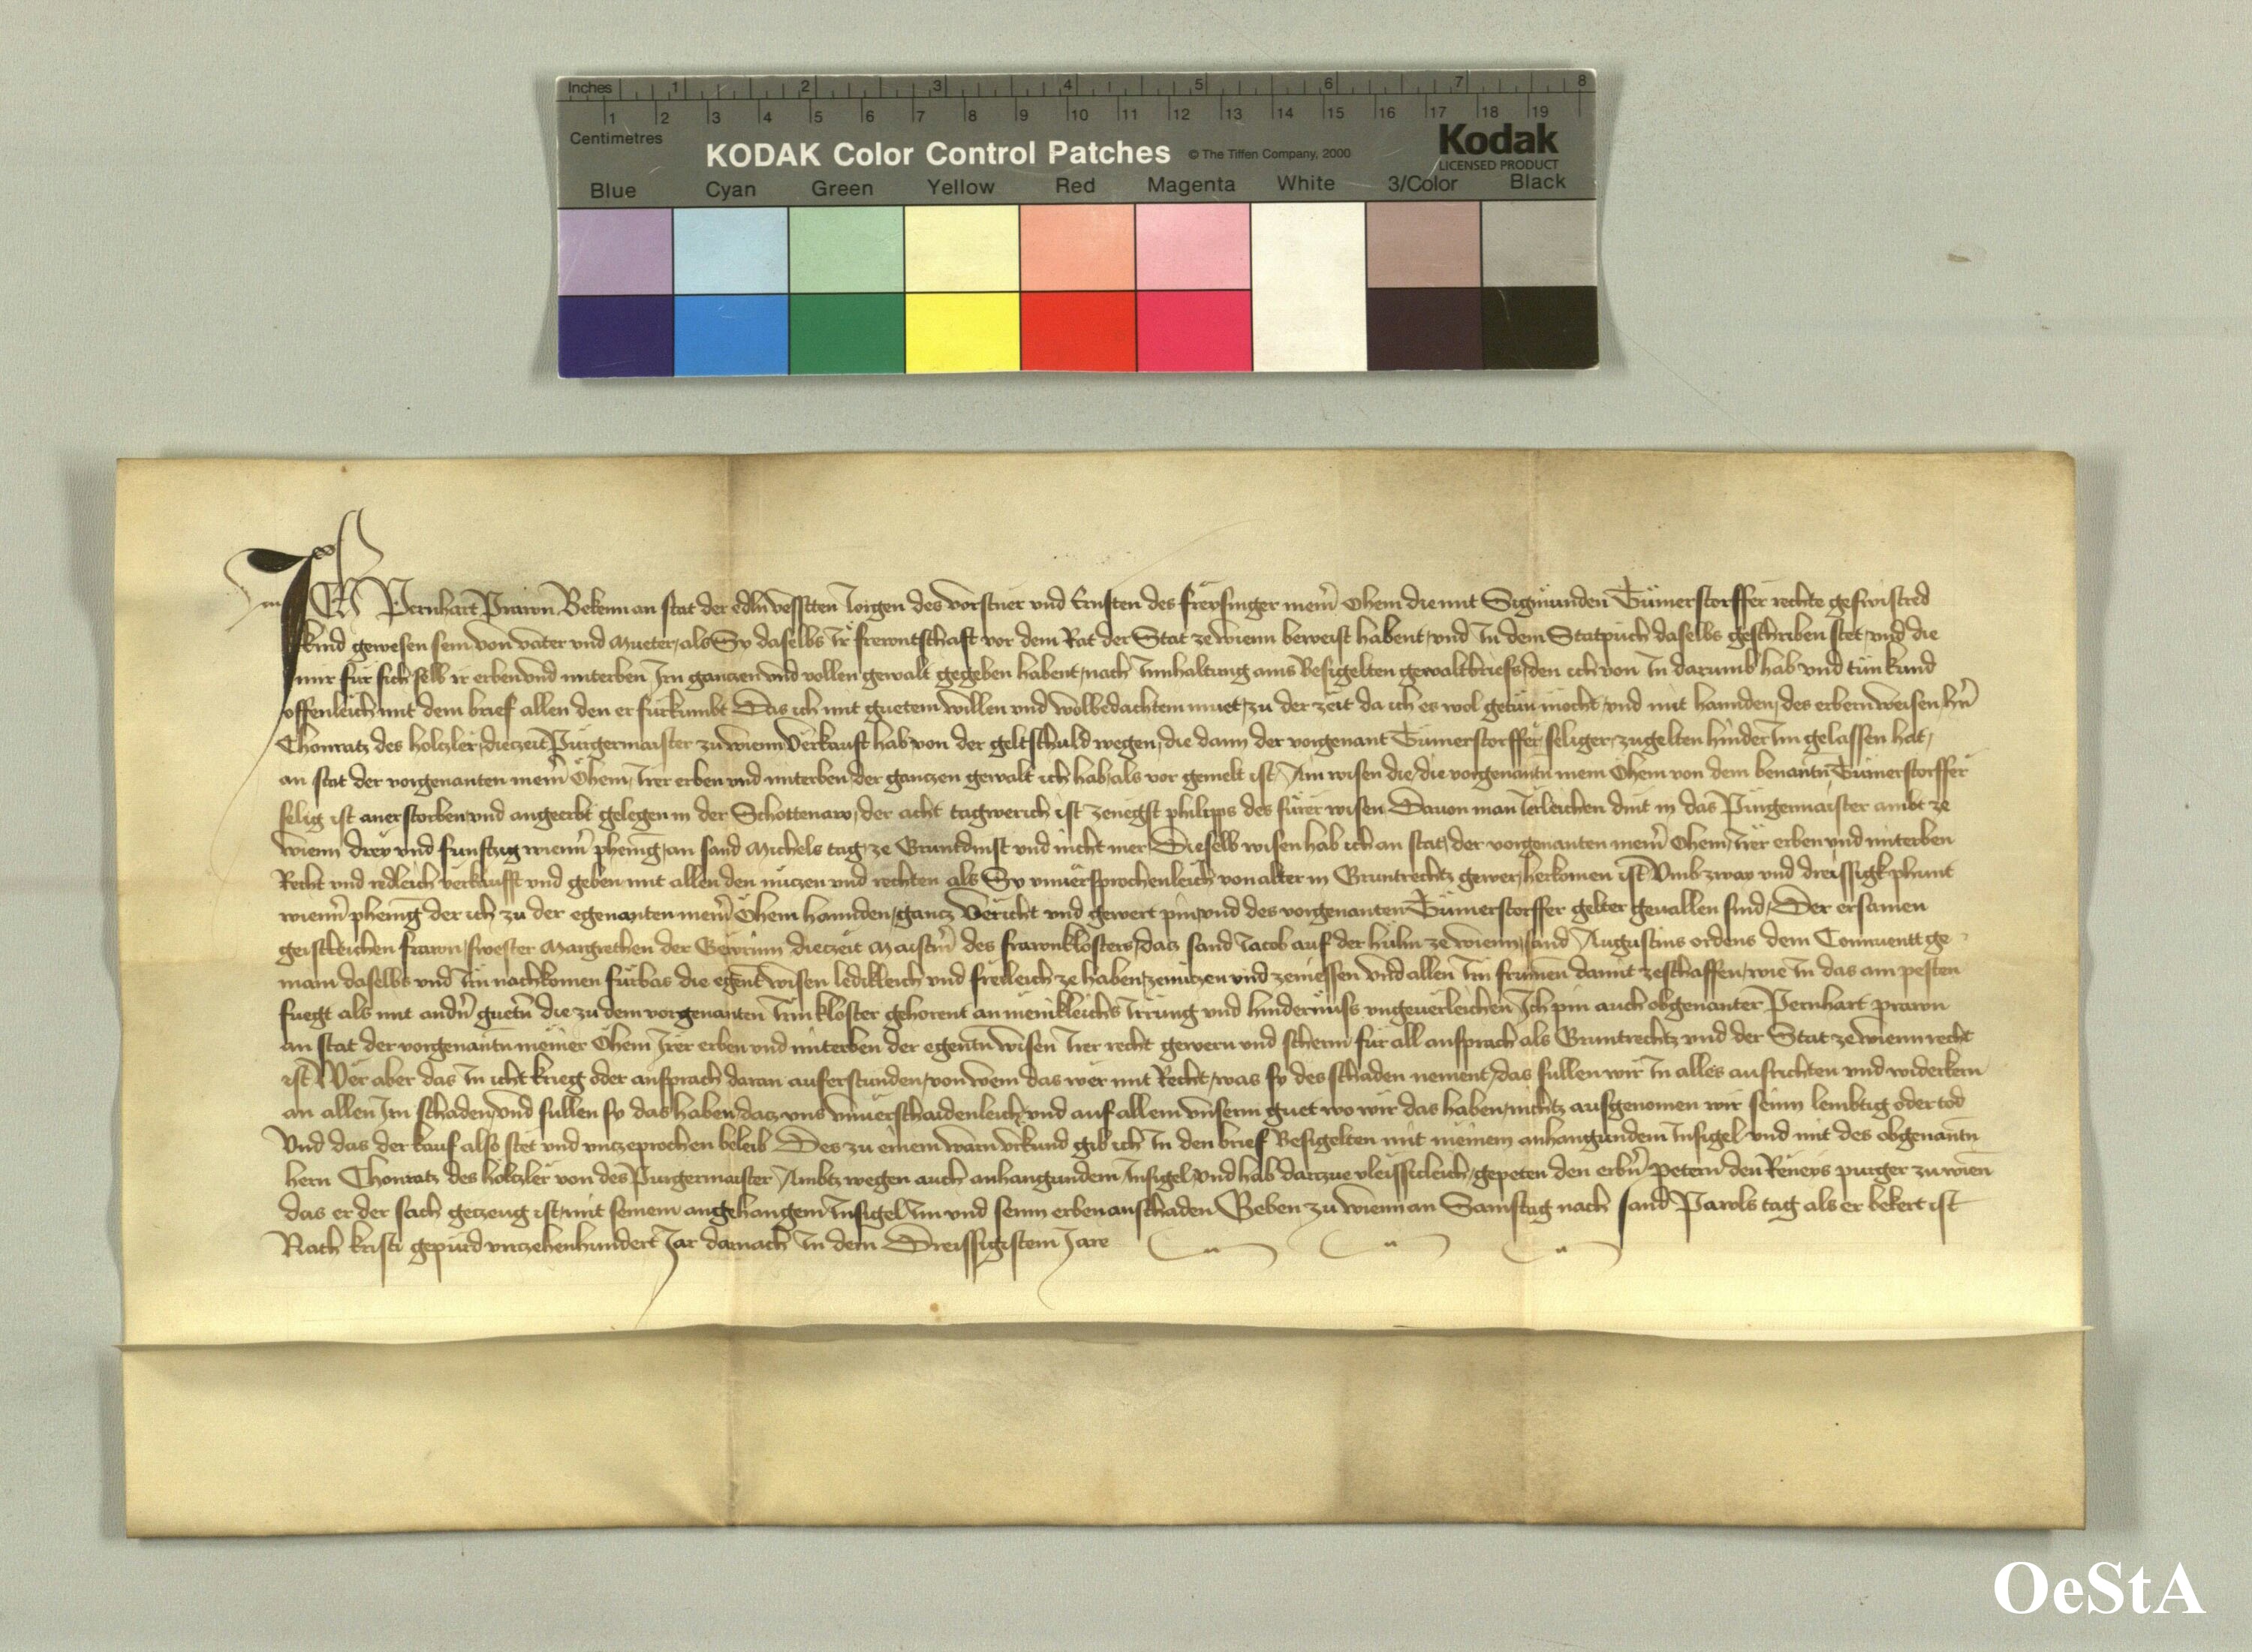 Inches 1 2 3 4 5 6 7 8
1 2 3 4 5 6 7 8 9 10 11 12 13 14 15 16 17 18 19
Centimetres
KODAK Color Control Patches © The Tiffen Company, 2000 Kodak
LICENSED PRODUCT
Blue Cyan Green Yellow Red Magenta White 3/Color Black
ICH Pernhart Prawn Bekenn an stat der edln vessten Jorgen des vorstner vnd Ernsten des freysinger mein Öhem die mit Sigmunden Tümerstorffer rechte geswistred
kind gewesen sein von vater vnd mueter als Sy daselbs Ir frewntschaft vor dem Rat der Stat ze wienn beweist habent vnd in dem Statpuch daselbs geschriben stet vnd die
mir für sich selb ir erben vnd miterben Irn ganczen vnd vollen gewalt gegeben habent nach Innhaltung ains besigelten gewaltbriefs den ich von In darumb hab vnd tün kund
offenleich mit dem brief allen den er fürkumbt Das ich mit guetem willen vnd wolbedachtem muet zu der zeit da ich es wol getün mocht vnd mit hannden des erbern weisen hern
Chonratz des holczler die zeit Purgermaister zu wienn verkauft hab von der geltschuld wegen die dann der vorgenant Tümerstorffer seliger zugelten hinder Im gelassen hat
an stat der vorgenanten mein Öhem Irer erben vnd miterben der ganczen gewalt ich hab als vor gemelt ist Ain wisen die die vorgenanten mein Öhem von dem benantn Tümerstorffer
selig ist anerstorben vnd angeerbt gelegen in der Schottenaw der acht tagwerich ist zenegst philipps des fürer wisen Dauon man Jerleichen dint in das Purgermaister ambt ze
wienn drey vnd funftzig wienn phening an sand Michels tag ze Gruntdinst vnd nicht mer Dieselb wisen hab ich an stat der vorgenanten mein Öhem Irer erben vnd miterben
Recht vnd redleich verkaufft vnd geben mit allen den nuczen vnd rechten als Sy vnuersprochenleich von alter in Gruntrechtz gewer herkomen ist Vmb zway vnd dreissigk phunt
wienn phening der ich zu der egenanten mein Öhem hannden gancz verricht vnd gewert pin vnd des vorgenanten Tümerstorffer gelter geuallen sind Der ersamen
geistleichen frawn swester Margrethen der die zeit Maistrin des frawnklosters datz sand Jacob auf der hülm ze wienn sand Augustins ordens dem Conuentt ge
main daselbs vnd Irn nachkomen fürbas die egent wisen ledikleich vnd freileich ze haben ze nüczen vnd zeniessen vnd allen Irn frumen damit zeschaffen wie In das am pesten
fuegt als mit andern guetn die zu dem vorgenanten Irm kloster gehorent an menikleichs Irrung vnd hindernüss vngeuerleichen Ich pin auch obgenanter Pernhart prawn
an stat der vorgenantn meiner Öhem Irer erben vnd miterben der egentn wisen Irer recht gewern vnd scherm für all ansprach als Gruntrechtz vnd der Stat ze wienn recht
ist Wer aber das In icht krieg oder ansprach daran auferstunden von wem das wer mit Recht was sy des schaden nement das sullen wir In alles ausrichten vnd widerkern
an allen Irn schaden vnd sullen sy das haben datz vns vnuerschaidenleich vnd auf allem vnserm guet wo wir das haben nichtz ausgenomen wir seinn lembtig oder tod
Vnd das der kauf also stet vnd vnczeprochen beleib Des zu einem warn vrkund gib ich In den brief Besigelten mit meinem anhangundem Insigel vnd mit des obgenantn
hern Chonratz des holczler von des Purgermaister Ambtz wegen auch anhangundem Insigel vnd hab darzue vleissicleich gepeten den erbern Petern den Reneys purger zu wien
das er der sach geczeug ist mit seinem angehangem Insigel Im vnd seinn erben an schaden Geben zu wienn an Samstag nach sand Pawls tag als er bekert ist
Nach kristi gepurd vierzehenhundert Jar darnach In dem Dreissigistem Jare
OeStA